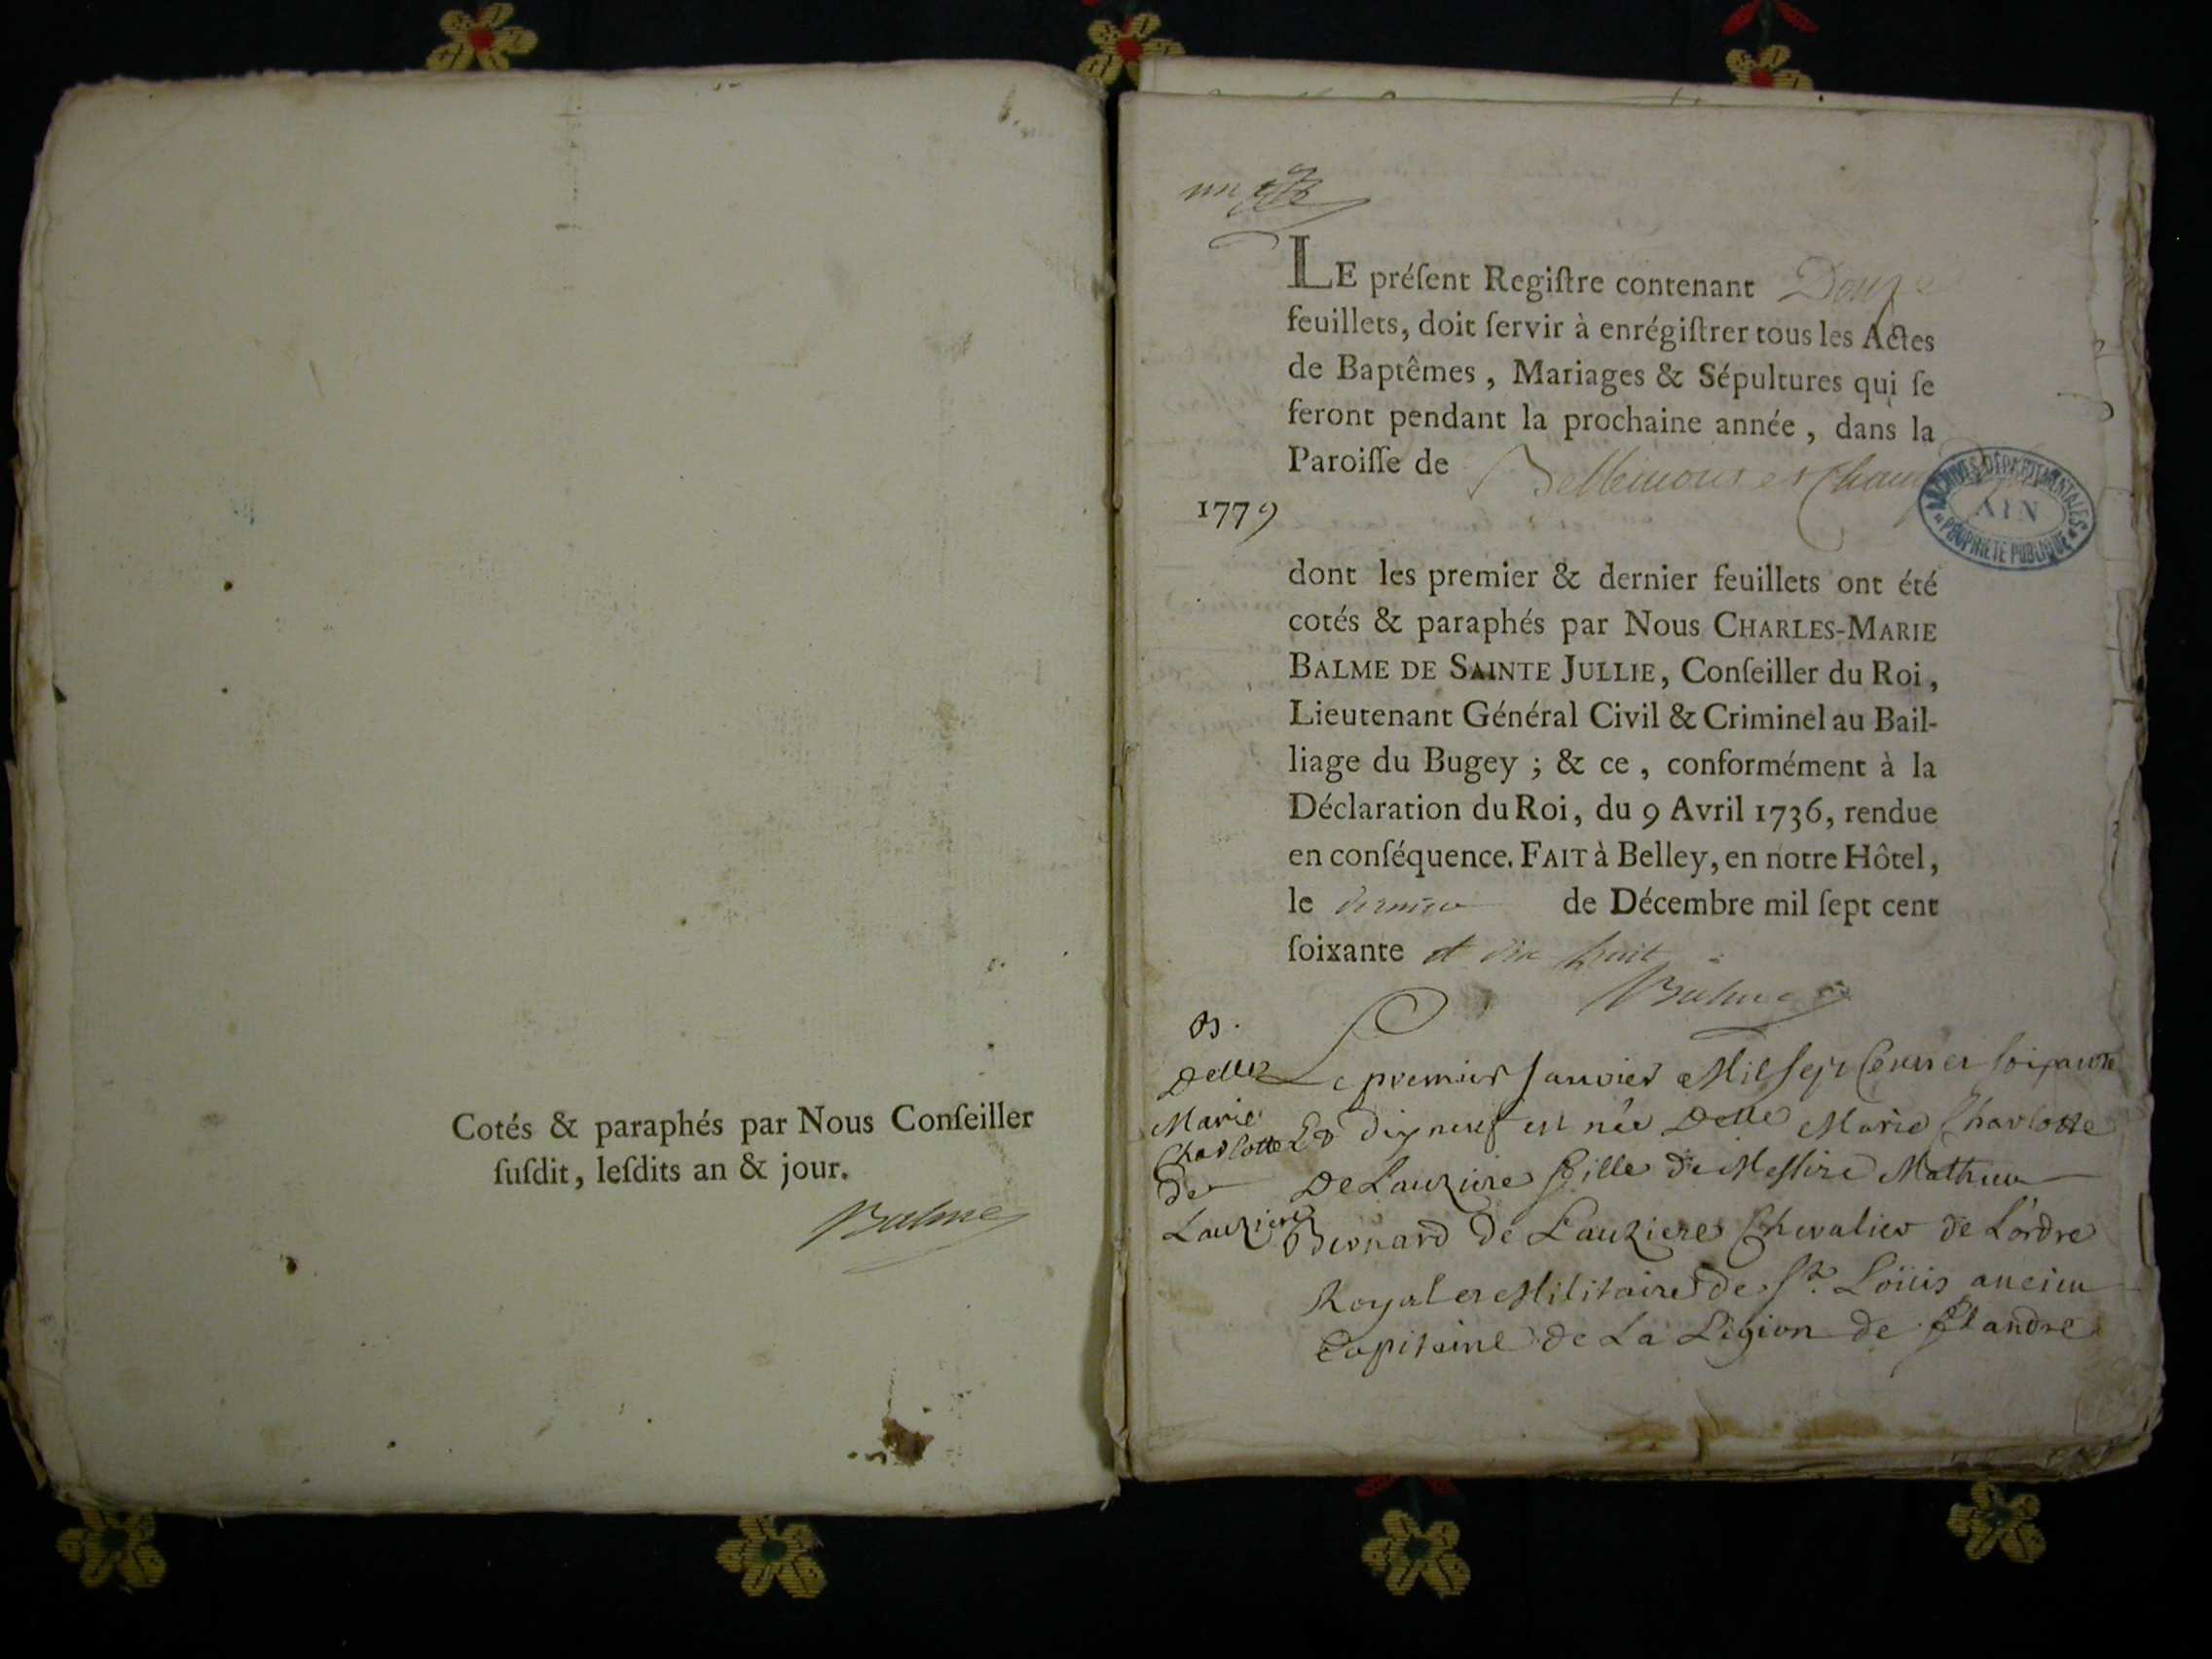 Cotés & paraphés par Nous Conſeiller
ſuſdit, leſdits an & jour.
Balme
un
LE préſent Regiſtre contenant Douze
feuillets, doit ſervir à enrégiſtrer tous les Actes
de Baptêmes, Mariages & Sépultures qui ſe
feront pendant la prochaine année, dans la
Paroiſſe de Bellemont et
1779
ARCHIVES DÉPARTEMENTALES
AIN
PROPRIÉTÉ PUBLIQUE
dont les premier & dernier feuillets ont été
cotés & paraphés par Nous CHARLES-MARIE
BALME DE SAINTE JULLIE, Conſeiller du Roi,
Lieutenant Général Civil & Criminel au Bail-
liage du Bugey ; & ce, conformément à la
Déclaration du Roi, du 9 Avril 1736, rendue
en conſéquence. FAIT à Belley, en notre Hôtel,
le dernier de Décembre mil ſept cent
ſoixante et dix huit
Balme
B.
Delle
Marie
Charlotte
de
Lauzieres
Le premier Janvier Mil Sept Cent et soixante
Et dix neuf est née Delle Marie Charlotte
De Lauzieres fille de Messire Mathieu
Bernard de Lauzieres Chevalier de L'ordre
Royal et Militaire de St. Loüis ancien
Capitaine de La Légion de flandre